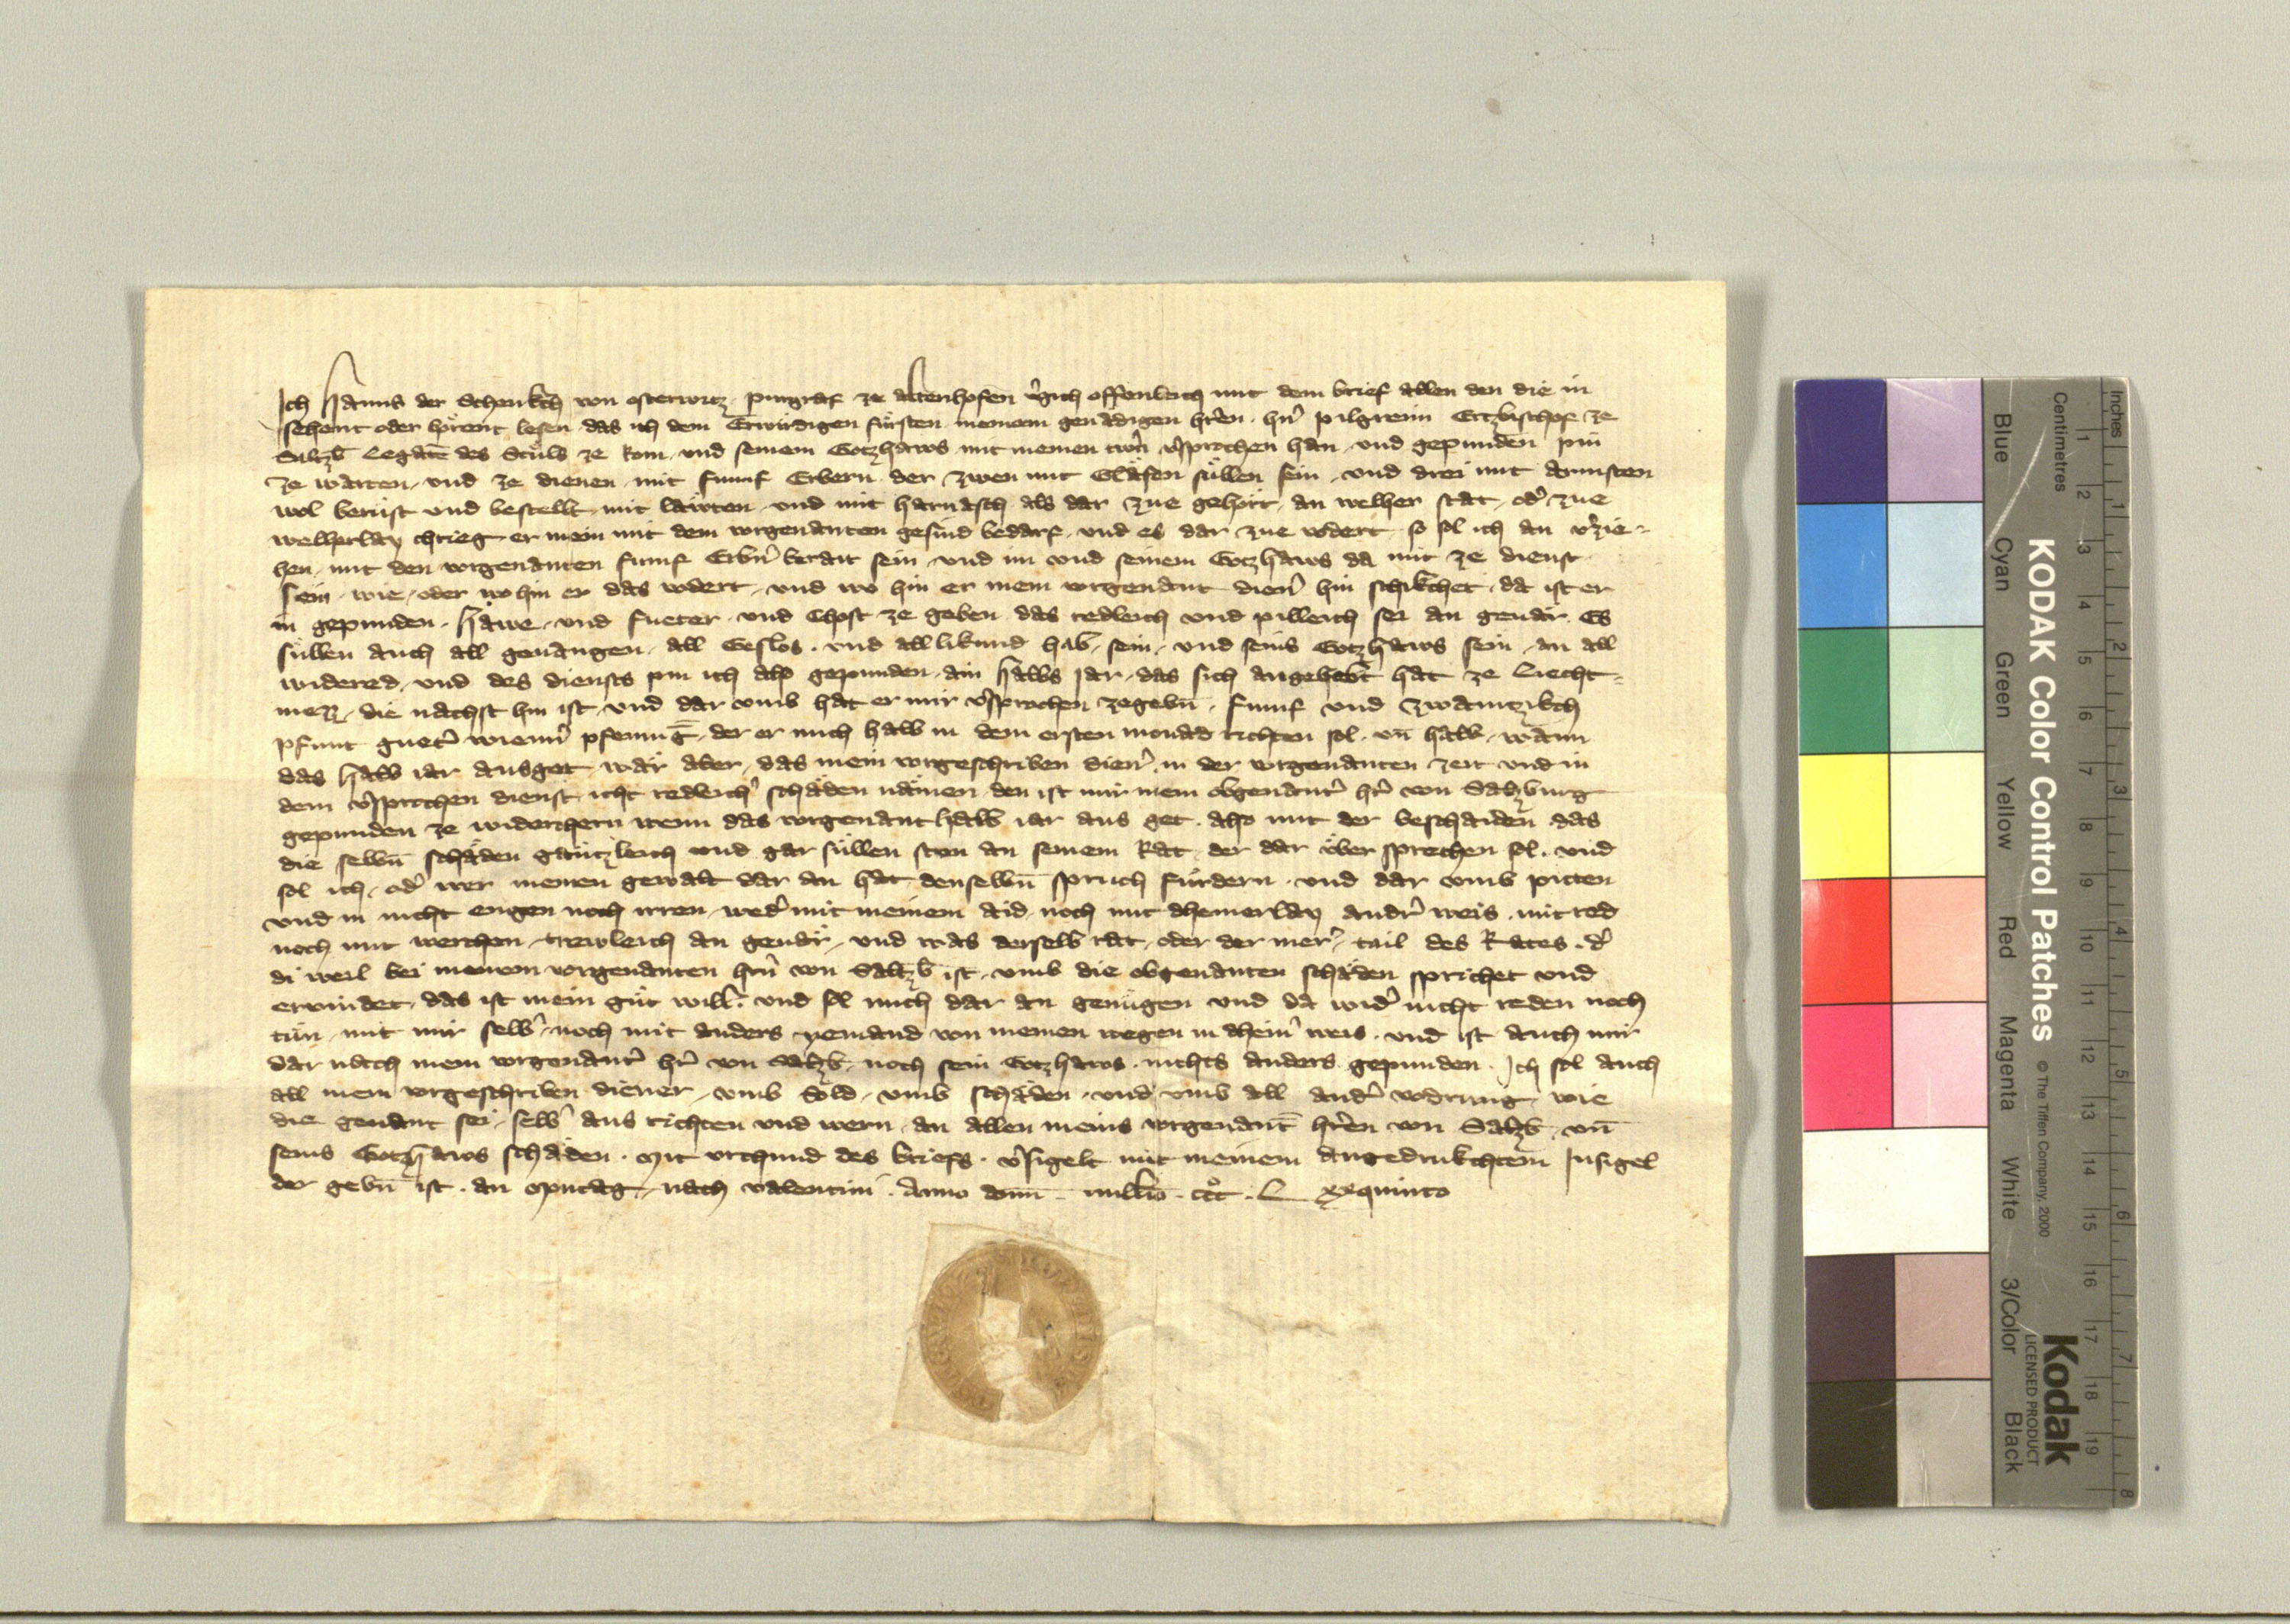 Ich Hanns der Schenkch von osterwitz purgraf ze altenhofen v̓gich offenleich mit dem brief allen den die in
sehent oder hörent lesen das ich dem Erwirdigen fürsten meinem genädigen hr̓en hn̓ pilgreim Ertzbischof ze
Saltzb̄ Legatē des Stuls ze Rom und seinem Gotzhaws mit meinen trŵn v̓sprochen han und gepunden pin
ze warten und ze dienen mit fumf Erbern der zwen mit Gläfen süllen sein und drei mit armsten
wol berüst und bestellt mit läwten und mit harnasch als dar zue gehört an welher stat od̓ zue
welherlay chrieg er mein mit dem vorgenanten gesind bedarf und es dar zue vodert so sol ich an v̓zie-
hen mit den vorgenanten fumf Erbn̓ berait sein und im und seinem Gotzhaws da mit ze dienst
sein wie oder wo hin er das vodert und wo hin er mein vorgenant dien̓ hin schikchet da ist er
in gepunden häwe und fueter und Chost ze geben das redleich und pilleich sei an geuär Es
süllen auch all geuangen all Geslos und all likund hab sein und seins Gotzhaws sein an all
widered und des diensts pin ich also gepunden ain halbs Jar das sich angehebt hat ze Liecht-
mezz die nachst hin ist und dar vmb hat er mir v̓sprochen zegebn̄ fumf und zwaintzikch
pfunt guet̓ wienn̓ pfennīg der er mich halb in dem ersten monad richten sol un̄ halb wann
das halb iar ausget wär aber das mein vorgeschriben dien̓ in der vorgenanten zeit und in
dem v̓sprochen dienst icht redleich̓ schäden nämen den ist mir mein obgenant̓ hr̓ von Salzburg
gepunden ze widerchern wenn das vorgenant halb iar aus get also mit der beschaiden das
die selbn̄ schäden gäntzleich und gar süllen sten an seinem Rat der dar über sprechen sol und
sol ich od̓ wer meinen gewalt dar an hat denselbn̄ spruch fürdern und dar vmb pitten
und in nicht engen noch irren wed̓ mit meinem aid noch mit dheinerlay and̓r weis mit red
noch mit werchen trewleich an geuär und was derselb rat oder der mer̓ tail des Rates d̓
di weil bei meinem vorgenanten hrn̓ von Saltzb̄ ist vmb die obgenanten schäden sprichet und
ervindet das ist mein güt will und sol mich dar an genügen und da wid̓ nicht reden noch
tün mit mir selb̓ noch mit anders yemand von meinen wegen in dhein̓ weis und ist auch mir
dar nach mein vorgenant̓ hr̓ von Salzb̄ noch sein Gotzhaws nichts anders gepunden Ich sol auch
all mein vorgeschriben diener vmb Sold vmb schäden und vmb all and̓ vodrung wie
die genant sei selb̓ aus richten und wern an allen meins vorgenant̄ hr̓en von Salzb̄ un̄
seins Gotzhaws schäden Mit vrchund des briefs v̓sigelt mit meinem angedrukchtem Insigel
der gebn̄ ist an Mentag nach valentini Anno domī milliō cccͦ L xxquinto
KODAK Color Control Patches © The Tiffen Company, 2000
Kodak
LICENSED PRODUCT
Blue Cyan Green Yellow Red Magenta White 3/Color Black
Inches 1 2 3 4 5 6 7 8
Centimetres 1 2 3 4 5 6 7 8 9 10 11 12 13 14 15 16 17 18 19